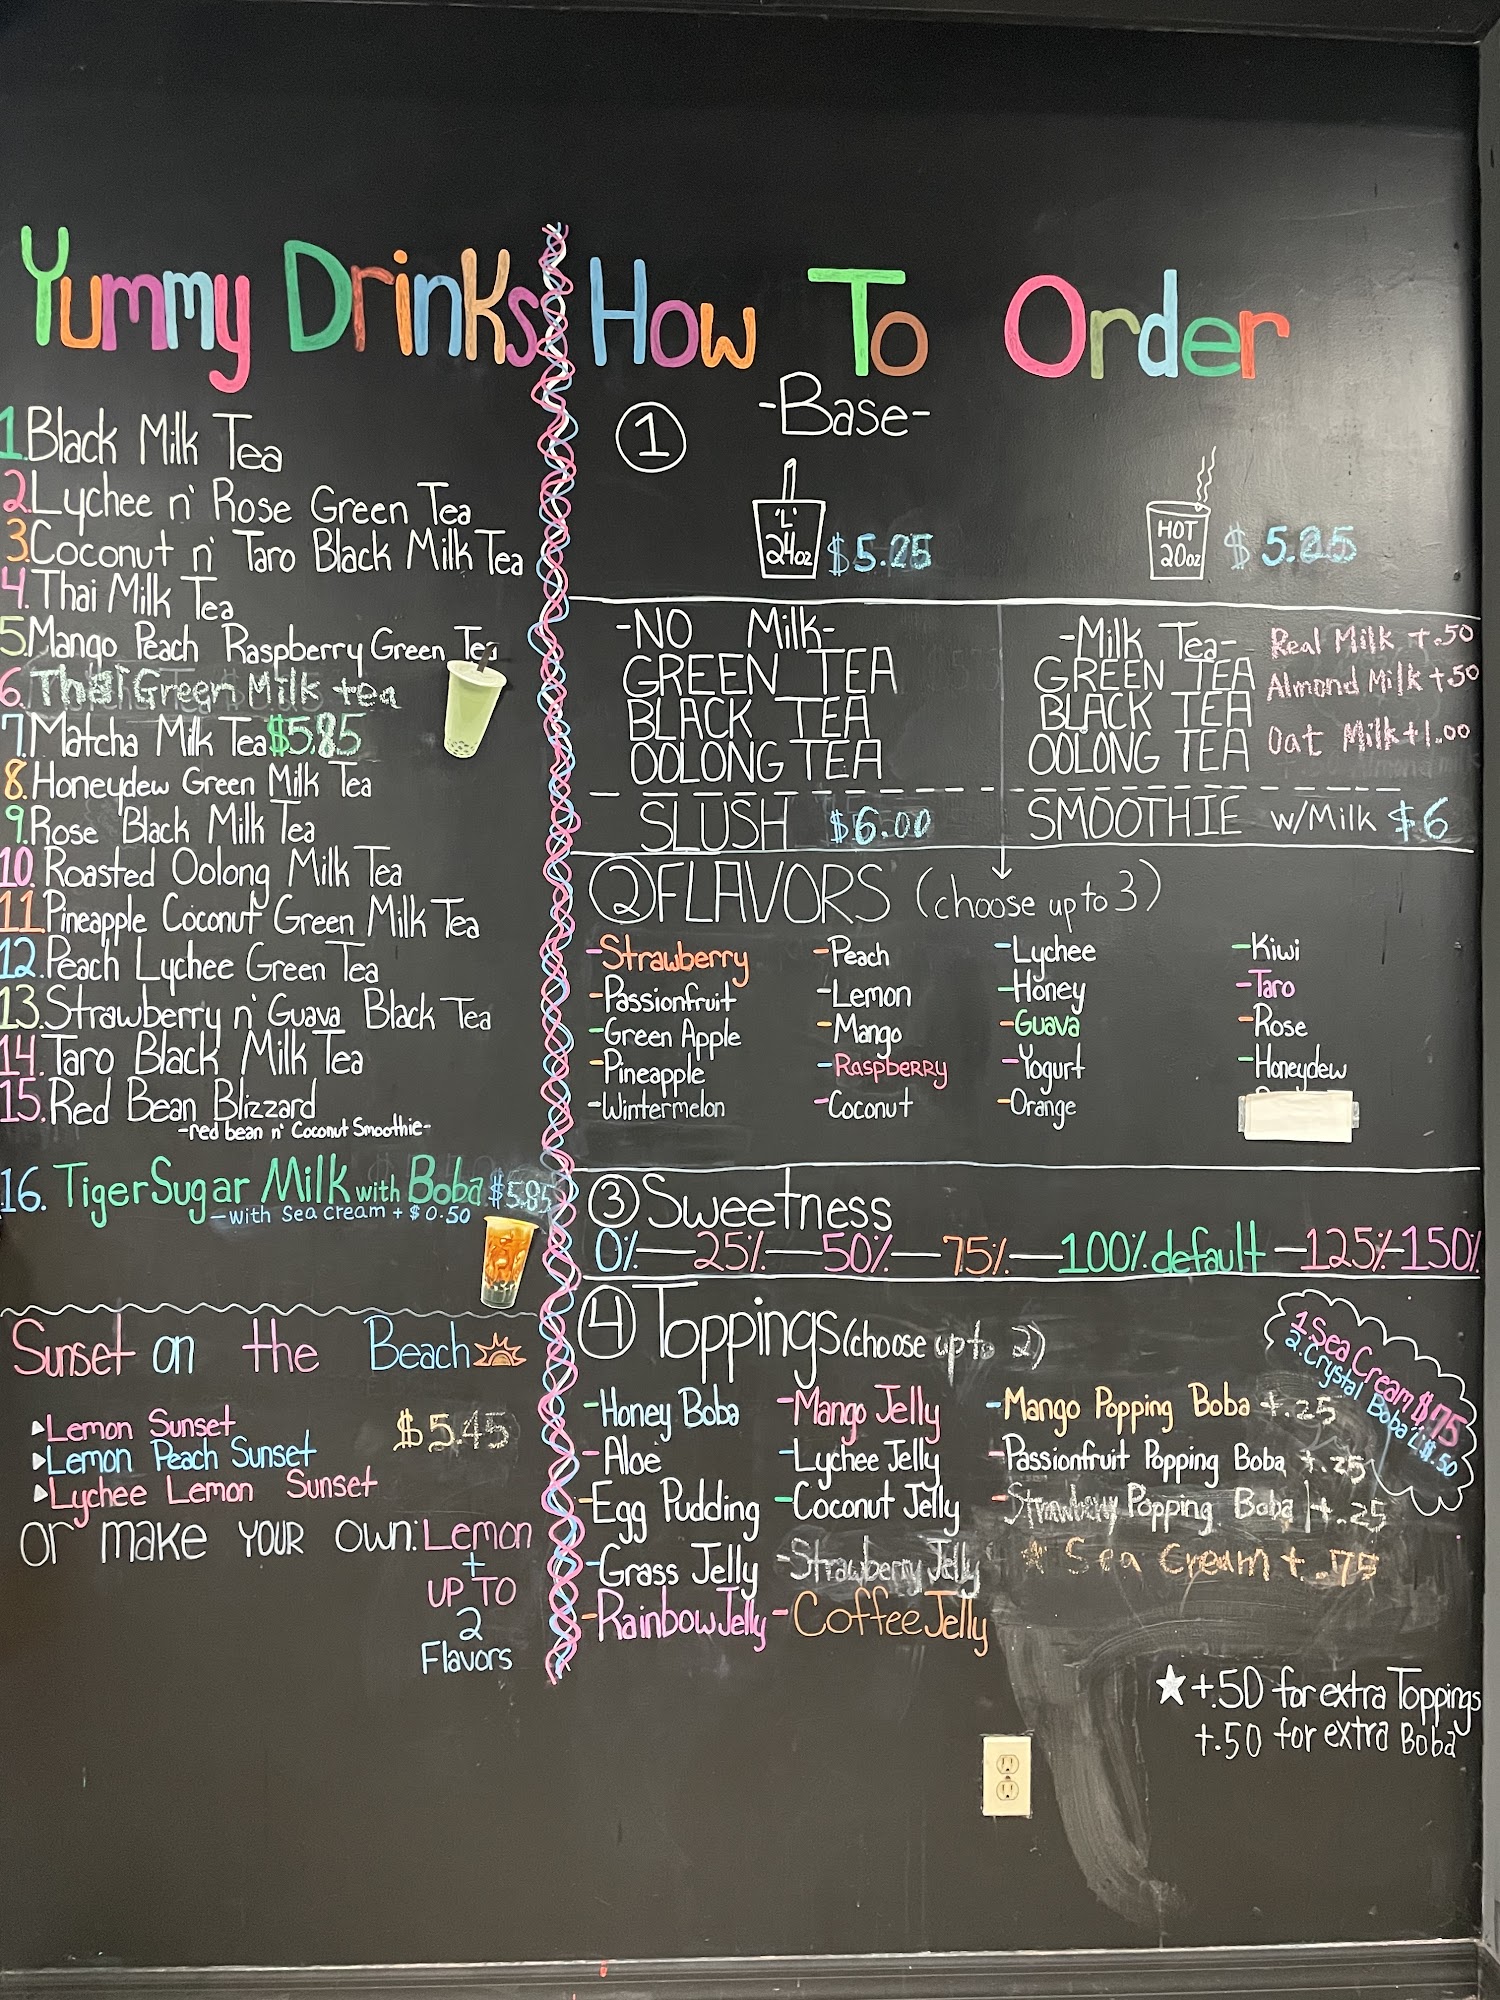 Yummy Drinks
1. Black Milk Tea
2. Lychee n' Rose Green Tea
3. Coconut n' Taro Black Milk Tea
4. Thai Milk Tea
5. Mango Peach Raspberry Green Tea
6. Thai Green Milk tea
7. Matcha Milk Tea $5.85
8. Honeydew Green Milk Tea
9. Rose Black Milk Tea
10. Roasted Oolong Milk Tea
11. Pineapple Coconut Green Milk Tea
12. Peach Lychee Green Tea
13. Strawberry n' Guava Black Tea
14. Taro Black Milk Tea
15. Red Bean Blizzard
-red bean n' Coconut Smoothie-
16. Tiger Sugar Milk with Boba $5.85
-with Sea cream + $0.50
Sunset on the Beach
Lemon Sunset $5.45
Lemon Peach Sunset
Lychee Lemon Sunset
or make YOUR own: Lemon
+
UP TO
2
Flavors
How To Order
1 -Base-
'L' 24oz $5.25
HOT 20oz $5.25
-NO Milk-
GREEN TEA
BLACK TEA
OOLONG TEA
SLUSH $6.00
-Milk Tea-
GREEN TEA
BLACK TEA
OOLONG TEA
Real Milk +.50
Almond Milk +.50
Oat Milk +1.00
SMOOTHIE w/Milk $6
2 FLAVORS (choose up to 3)
-Strawberry
-Passionfruit
-Green Apple
-Pineapple
-Wintermelon
-Peach
-Lemon
-Mango
-Raspberry
-Coconut
-Lychee
-Honey
-Guava
-Yogurt
-Orange
-Kiwi
-Taro
-Rose
-Honeydew
3 Sweetness
0%-25%-50%-75%-100% default-125%-150%
4 Toppings (choose up to 2)
-Honey Boba
-Aloe
-Egg Pudding
-Grass Jelly
-Rainbow Jelly
-Mango Jelly
-Lychee Jelly
-Coconut Jelly
-Strawberry Jelly
-Coffee Jelly
-Mango Popping Boba +.25
-Passionfruit Popping Boba +.25
-Strawberry Popping Boba +.25
★ Sea Cream +.75
1. Sea Cream $.75
2. Crystal Boba $.50
★ +.50 for extra Toppings
+.50 for extra Boba